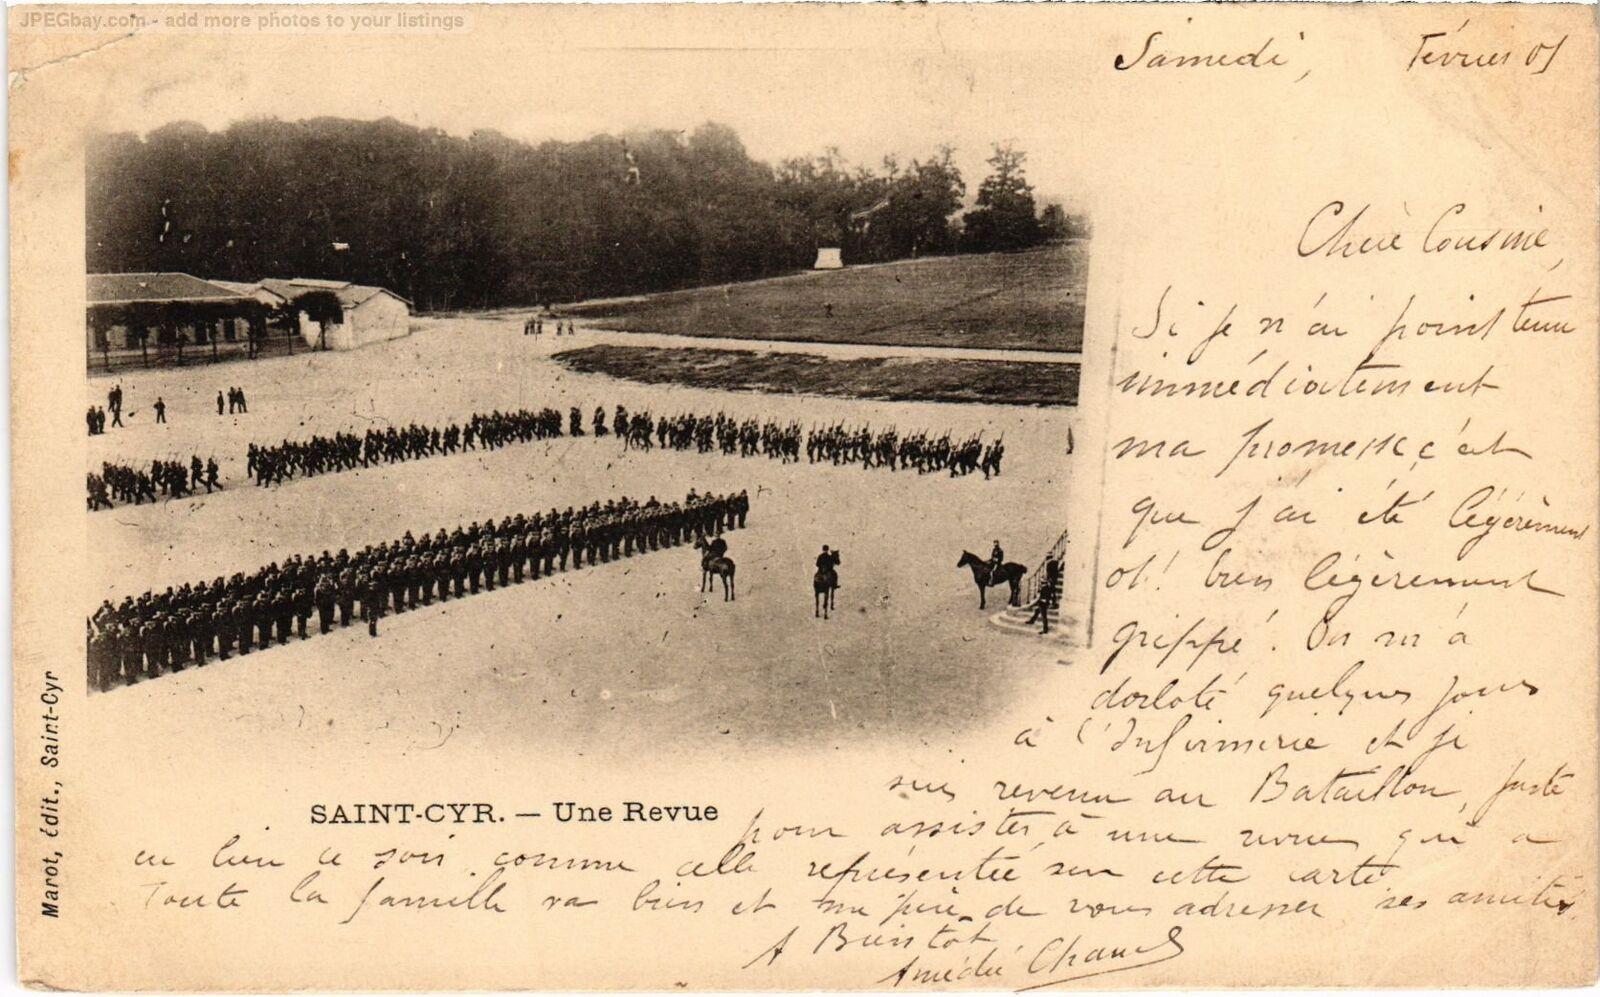 JPEGbay.com - add more photos to your listings
Samedi, Février 01
Chère Cousine,
Si je n'ai point tenu
immédiatement
ma promesse c'est
que j'ai été légèrement
oh! bien légèrement
grippé. On m'a
dorloté quelques jours
à l'Infirmerie et je
suis revenu au Bataillon, juste
pour assister à une revue qui a
eu lieu ce soir comme celle représentée sur cette carte
Toute la famille va bien et me prie de vous adresser ses amitiés.
A Bientôt
Amédée
SAINT-CYR. — Une Revue
Marot, édit., Saint-Cyr